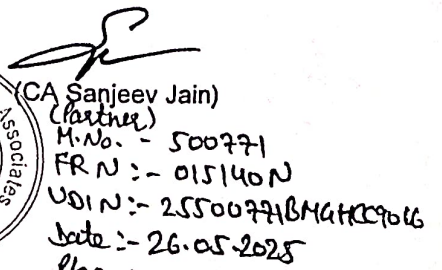 (CA Sanjeev Jain)
(Partner)
M.No. - 500771
FRN :- 015140N
UDIN :- 25500771BMGHCC9016
Date :- 26.05.2025
Associates